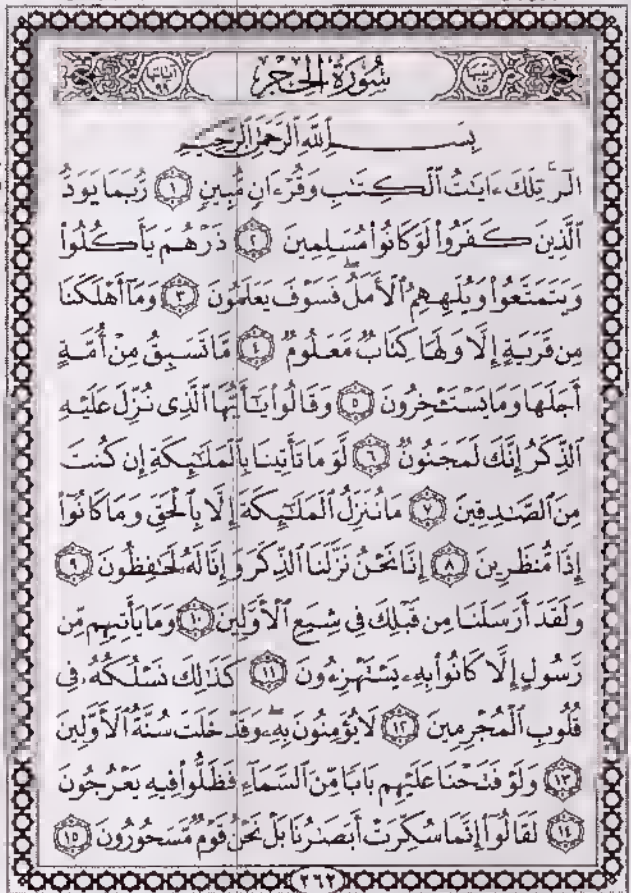 ترتيبها ١٥
سُورَةُ الْحِجْرِ
آياتها ٩٩
بِسْمِ ٱللَّهِ ٱلرَّحْمَٰنِ ٱلرَّحِيمِ
الٓرۚ تِلْكَ ءَايَٰتُ ٱلْكِتَٰبِ وَقُرْءَانٍ مُّبِينٍ ١ رُّبَمَا يَوَدُّ
ٱلَّذِينَ كَفَرُوا۟ لَوْ كَانُوا۟ مُسْلِمِينَ ٢ ذَرْهُمْ يَأْكُلُوا۟
وَيَتَمَتَّعُوا۟ وَيُلْهِهِمُ ٱلْأَمَلُۖ فَسَوْفَ يَعْلَمُونَ ٣ وَمَآ أَهْلَكْنَا
مِن قَرْيَةٍ إِلَّا وَلَهَا كِتَابٌ مَّعْلُومٌ ٤ مَّا تَسْبِقُ مِنْ أُمَّةٍ
أَجَلَهَا وَمَا يَسْتَـْٔخِرُونَ ٥ وَقَالُوا۟ يَٰٓأَيُّهَا ٱلَّذِى نُزِّلَ عَلَيْهِ
ٱلذِّكْرُ إِنَّكَ لَمَجْنُونٌ ٦ لَّوْ مَا تَأْتِينَا بِٱلْمَلَٰٓئِكَةِ إِن كُنتَ
مِنَ ٱلصَّٰدِقِينَ ٧ مَا نُنَزِّلُ ٱلْمَلَٰٓئِكَةَ إِلَّا بِٱلْحَقِّ وَمَا كَانُوٓا۟
إِذًا مُّنظَرِينَ ٨ إِنَّا نَحْنُ نَزَّلْنَا ٱلذِّكْرَ وَإِنَّا لَهُۥ لَحَٰفِظُونَ ٩
وَلَقَدْ أَرْسَلْنَا مِن قَبْلِكَ فِى شِيَعِ ٱلْأَوَّلِينَ ١٠ وَمَا يَأْتِيهِم مِّن
رَّسُولٍ إِلَّا كَانُوا۟ بِهِۦ يَسْتَهْزِءُونَ ١١ كَذَٰلِكَ نَسْلُكُهُۥ فِى
قُلُوبِ ٱلْمُجْرِمِينَ ١٢ لَا يُؤْمِنُونَ بِهِۦۖ وَقَدْ خَلَتْ سُنَّةُ ٱلْأَوَّلِينَ
١٣ وَلَوْ فَتَحْنَا عَلَيْهِم بَابًا مِّنَ ٱلسَّمَآءِ فَظَلُّوا۟ فِيهِ يَعْرُجُونَ
١٤ لَقَالُوٓا۟ إِنَّمَا سُكِّرَتْ أَبْصَٰرُنَا بَلْ نَحْنُ قَوْمٌ مَّسْحُورُونَ ١٥
٢٦٢